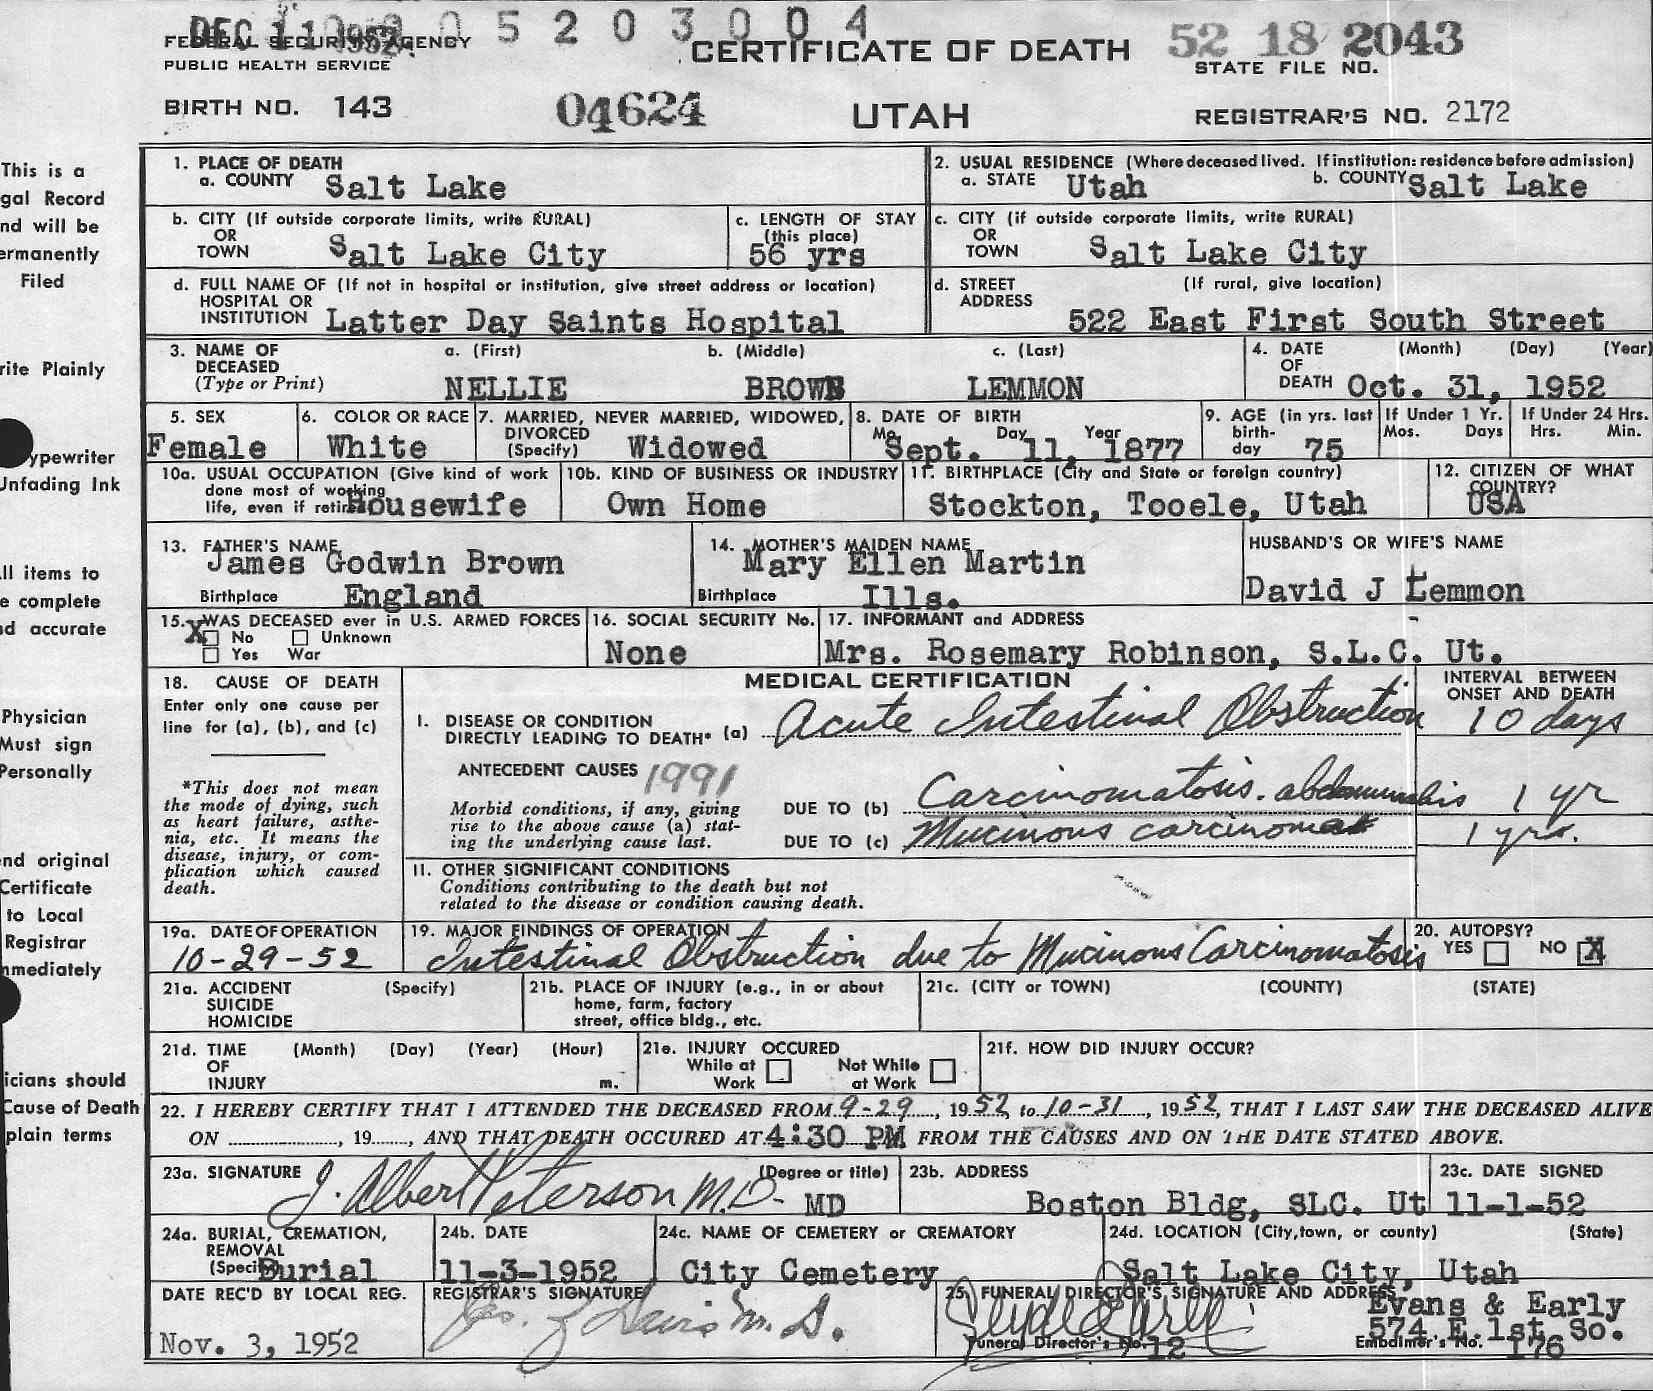 DEC 11 1952 0 5 2 0 3 0 0 4
FEDERAL SECURITY AGENCY
PUBLIC HEALTH SERVICE
CERTIFICATE OF DEATH
52 18 2043
STATE FILE NO.
BIRTH NO. 143
04624
UTAH
REGISTRAR'S NO. 2172
This is a
gal Record
nd will be
ermanently
Filed
rite Plainly
ypewriter
Unfading Ink
ll items to
e complete
nd accurate
Physician
Must sign
Personally
nd original
Certificate
to Local
Registrar
mmediately
icians should
Cause of Death
plain terms
1. PLACE OF DEATH
a. COUNTY Salt Lake
2. USUAL RESIDENCE (Where deceased lived. If institution: residence before admission)
a. STATE Utah b. COUNTY Salt Lake
b. CITY (If outside corporate limits, write RURAL)
OR
TOWN Salt Lake City
c. LENGTH OF STAY
(this place)
56 yrs
c. CITY (if outside corporate limits, write RURAL)
OR
TOWN Salt Lake City
d. FULL NAME OF (If not in hospital or institution, give street address or location)
HOSPITAL OR
INSTITUTION Latter Day Saints Hospital
d. STREET (If rural, give location)
ADDRESS
522 East First South Street
3. NAME OF a. (First) b. (Middle) c. (Last)
DECEASED
(Type or Print) NELLIE BROWN LEMMON
4. DATE (Month) (Day) (Year)
OF
DEATH Oct. 31, 1952
5. SEX
Female
6. COLOR OR RACE
White
7. MARRIED, NEVER MARRIED, WIDOWED,
DIVORCED
(Specify) Widowed
8. DATE OF BIRTH
Mo. Day Year
Sept. 11, 1877
9. AGE (in yrs. last
birth-
day 75
If Under 1 Yr.
Mos. Days
If Under 24 Hrs.
Hrs. Min.
10a. USUAL OCCUPATION (Give kind of work
done most of working
life, even if retired Housewife
10b. KIND OF BUSINESS OR INDUSTRY
Own Home
11. BIRTHPLACE (City and State or foreign country)
Stockton, Tooele, Utah
12. CITIZEN OF WHAT
COUNTRY?
USA
13. FATHER'S NAME
James Godwin Brown
Birthplace England
14. MOTHER'S MAIDEN NAME
Mary Ellen Martin
Birthplace Ills.
HUSBAND'S OR WIFE'S NAME
David J Lemmon
15. WAS DECEASED ever in U.S. ARMED FORCES
X No Unknown
Yes War
16. SOCIAL SECURITY No.
None
17. INFORMANT and ADDRESS
Mrs. Rosemary Robinson, S.L.C. Ut.
18. CAUSE OF DEATH
Enter only one cause per
line for (a), (b), and (c)
*This does not mean
the mode of dying, such
as heart failure, asthe-
nia, etc. It means the
disease, injury, or com-
plication which caused
death.
MEDICAL CERTIFICATION
INTERVAL BETWEEN
ONSET AND DEATH
I. DISEASE OR CONDITION
DIRECTLY LEADING TO DEATH* (a) Acute Intestinal Obstruction 10 days
ANTECEDENT CAUSES 1991
Morbid conditions, if any, giving
rise to the above cause (a) stat-
ing the underlying cause last.
DUE TO (b) Carcinomatosis. abdominalis 1 yr
DUE TO (c) Mucinous carcinoma 1 yrs.
II. OTHER SIGNIFICANT CONDITIONS
Conditions contributing to the death but not
related to the disease or condition causing death.
19a. DATE OF OPERATION
10-29-52
19. MAJOR FINDINGS OF OPERATION
Intestinal Obstruction due to Mucinous Carcinomatosis
20. AUTOPSY?
YES NO X
21a. ACCIDENT (Specify)
SUICIDE
HOMICIDE
21b. PLACE OF INJURY (e.g., in or about
home, farm, factory
street, office bldg., etc.
21c. (CITY or TOWN) (COUNTY) (STATE)
21d. TIME (Month) (Day) (Year) (Hour)
OF
INJURY m.
21e. INJURY OCCURED
While at Not While
Work at Work
21f. HOW DID INJURY OCCUR?
22. I HEREBY CERTIFY THAT I ATTENDED THE DECEASED FROM 9-29, 1952 to 10-31, 1952, THAT I LAST SAW THE DECEASED ALIVE
ON ............, 19......, AND THAT DEATH OCCURED AT 4:30 PM FROM THE CAUSES AND ON THE DATE STATED ABOVE.
23a. SIGNATURE (Degree or title)
J. Albert Peterson M.D. MD
23b. ADDRESS
Boston Bldg, SLC. Ut
23c. DATE SIGNED
11-1-52
24a. BURIAL, CREMATION,
REMOVAL
(Specify) Burial
24b. DATE
11-3-1952
24c. NAME OF CEMETERY or CREMATORY
City Cemetery
24d. LOCATION (City, town, or county) (State)
Salt Lake City, Utah
DATE REC'D BY LOCAL REG.
Nov. 3, 1952
REGISTRAR'S SIGNATURE
M. D.
25. FUNERAL DIRECTOR'S, SIGNATURE AND ADDRESS
Evans & Early
574 E. 1st. So.
Funeral Director's No. 12
Embalmer's No. 176